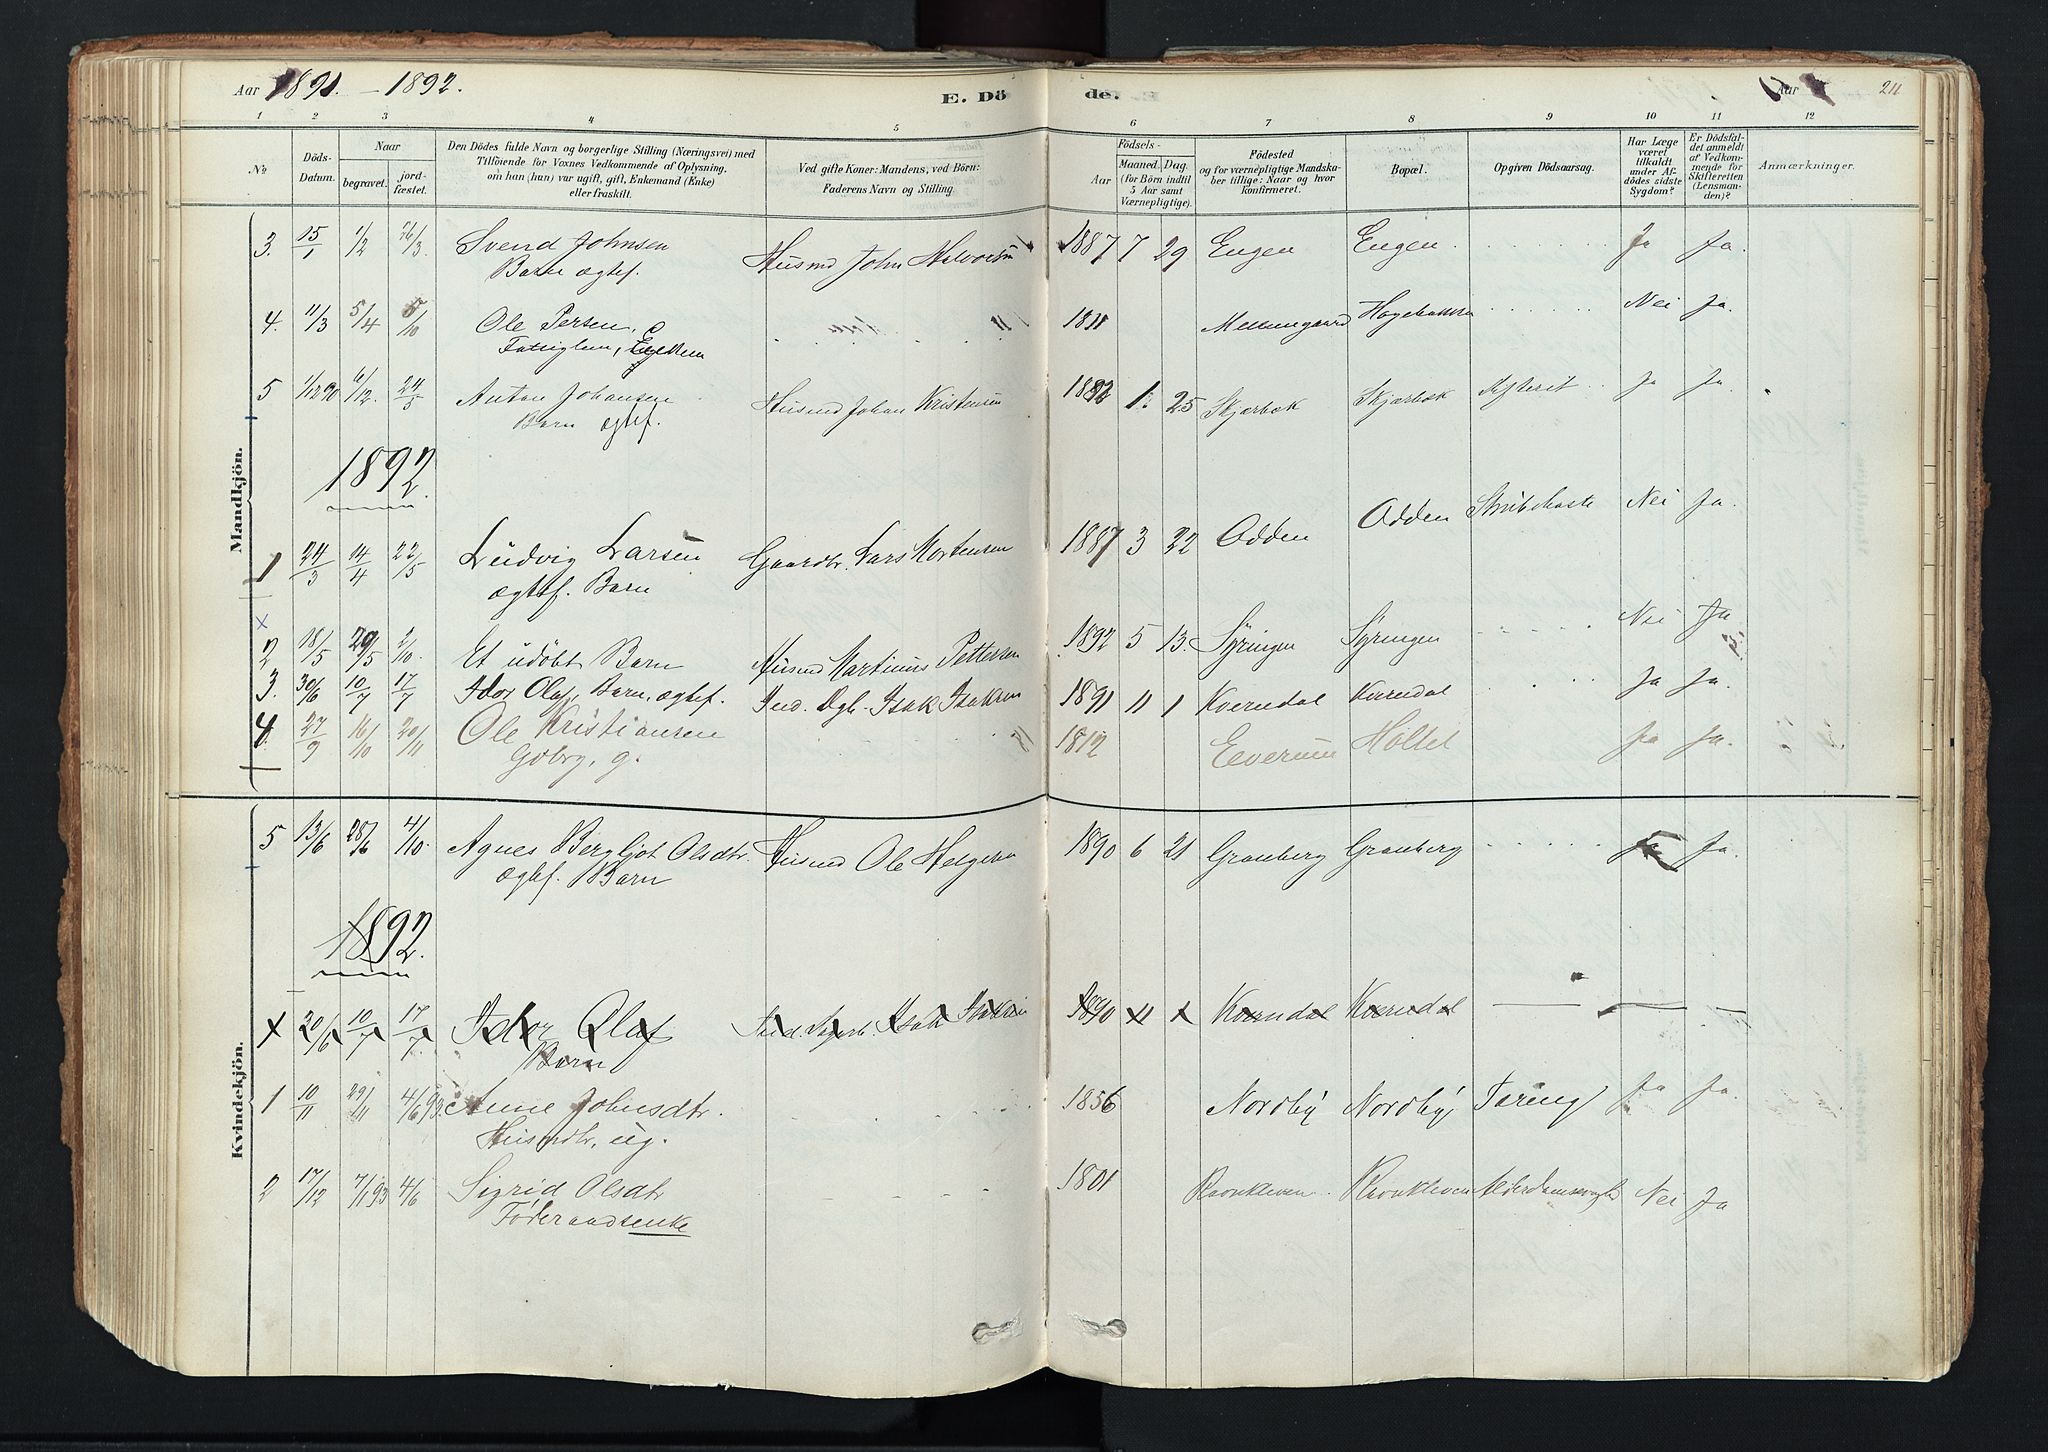 Aar 1891. - 1892. E. Dö de. Aar 211
1 2 3 4 5 6 7 8 9 10 11 12
No Döds-Datum. Naar begravet. jord-fæstet. Den Dödes fulde Navn og borgerlige Stilling (Næringsvei) med Tilföiende for Voxnes Vedkommende af Oplysning, om han (hun) var ugift, gift, Enkemand (Enke) eller fraskilt. Ved gifte Koner: Mandens, ved Börn: Faderens Navn og Stilling. Födsels- Aar Maaned. Dag. (for Börn indtil 5 Aar samt Værnepligtige). Födested og for værnepligtige Mandskaber tillige: Naar og hvor konfirmeret. Bopæl. Opgiven Dödsaarsag. Har Læge været tilkaldt under Afdödes sidste Sygdom? Er Dödsfaldet anmeldt af Vedkommende for Skifteretten (Lensmanden)? Anmærkninger.
Mandkjön.
3. 15/1 1/2 26/3. Svend Johnsen Husmd John Halvorsen 1887 7 29 Engen Engen. Ja Ja.
Barn ægtef.
4. 11/3 5/4 /10 Ole Persen, 1811 Nei Ja.
Fattiglem,
5 1/12 90 6/12. 24/5 Anton Johansen Husmd Johan Kristensen 1. 25 Skjærbæk Skjærbæk Ja Ja.
Barn ægtef.
1892.
1 24/3 14/4 22/5 Ludvig Larsen Gaardbr. Lars Mortensen 1887 3 22 Odden Odden Strubehoste Nei Ja.
ægtef. Barn
2 18/5 29/5 2/10. Et udöbt Barn Husmd Martinus Pettersen 1892 5 13. Syringen Syringen Nei Ja
3. 30/6 10/7 17/7 Idor Olaf, Barn, ægtef. Ind. Dgl. Isak Isaksen 1891 11 1 Kverndal Kverndal Ja Ja.
4 27/9 16/10 20/11 Ole Kristiansen 1812 Elverum Holtet Ja Ja.
Gbrg, g.
Kvindekjön.
5 13/6 28/6 4/10. Agnes Bergljot Olsdtr Husmd Ole Helgesen 1890 6 21 Granberg Granberg Ja Ja.
ægtef. Barn
1892.
x 20/6 10/7 17/7 Idor Olaf Ind. Isak Isaksen 1890 11 1 Kverndal Kverndal
Barn
1 10/11 29/11 4/6 93. Anne Johnsdtr. 1856 Nordby Nordby Tæring Ja Ja.
Husmdtr, ug.
2 17/12 7/1 93 4/6 Sigrid Olsdtr 1801 Ravnkleven. Ravnkleven Alderdomssvaghed Nei Ja
Föderaadsenke